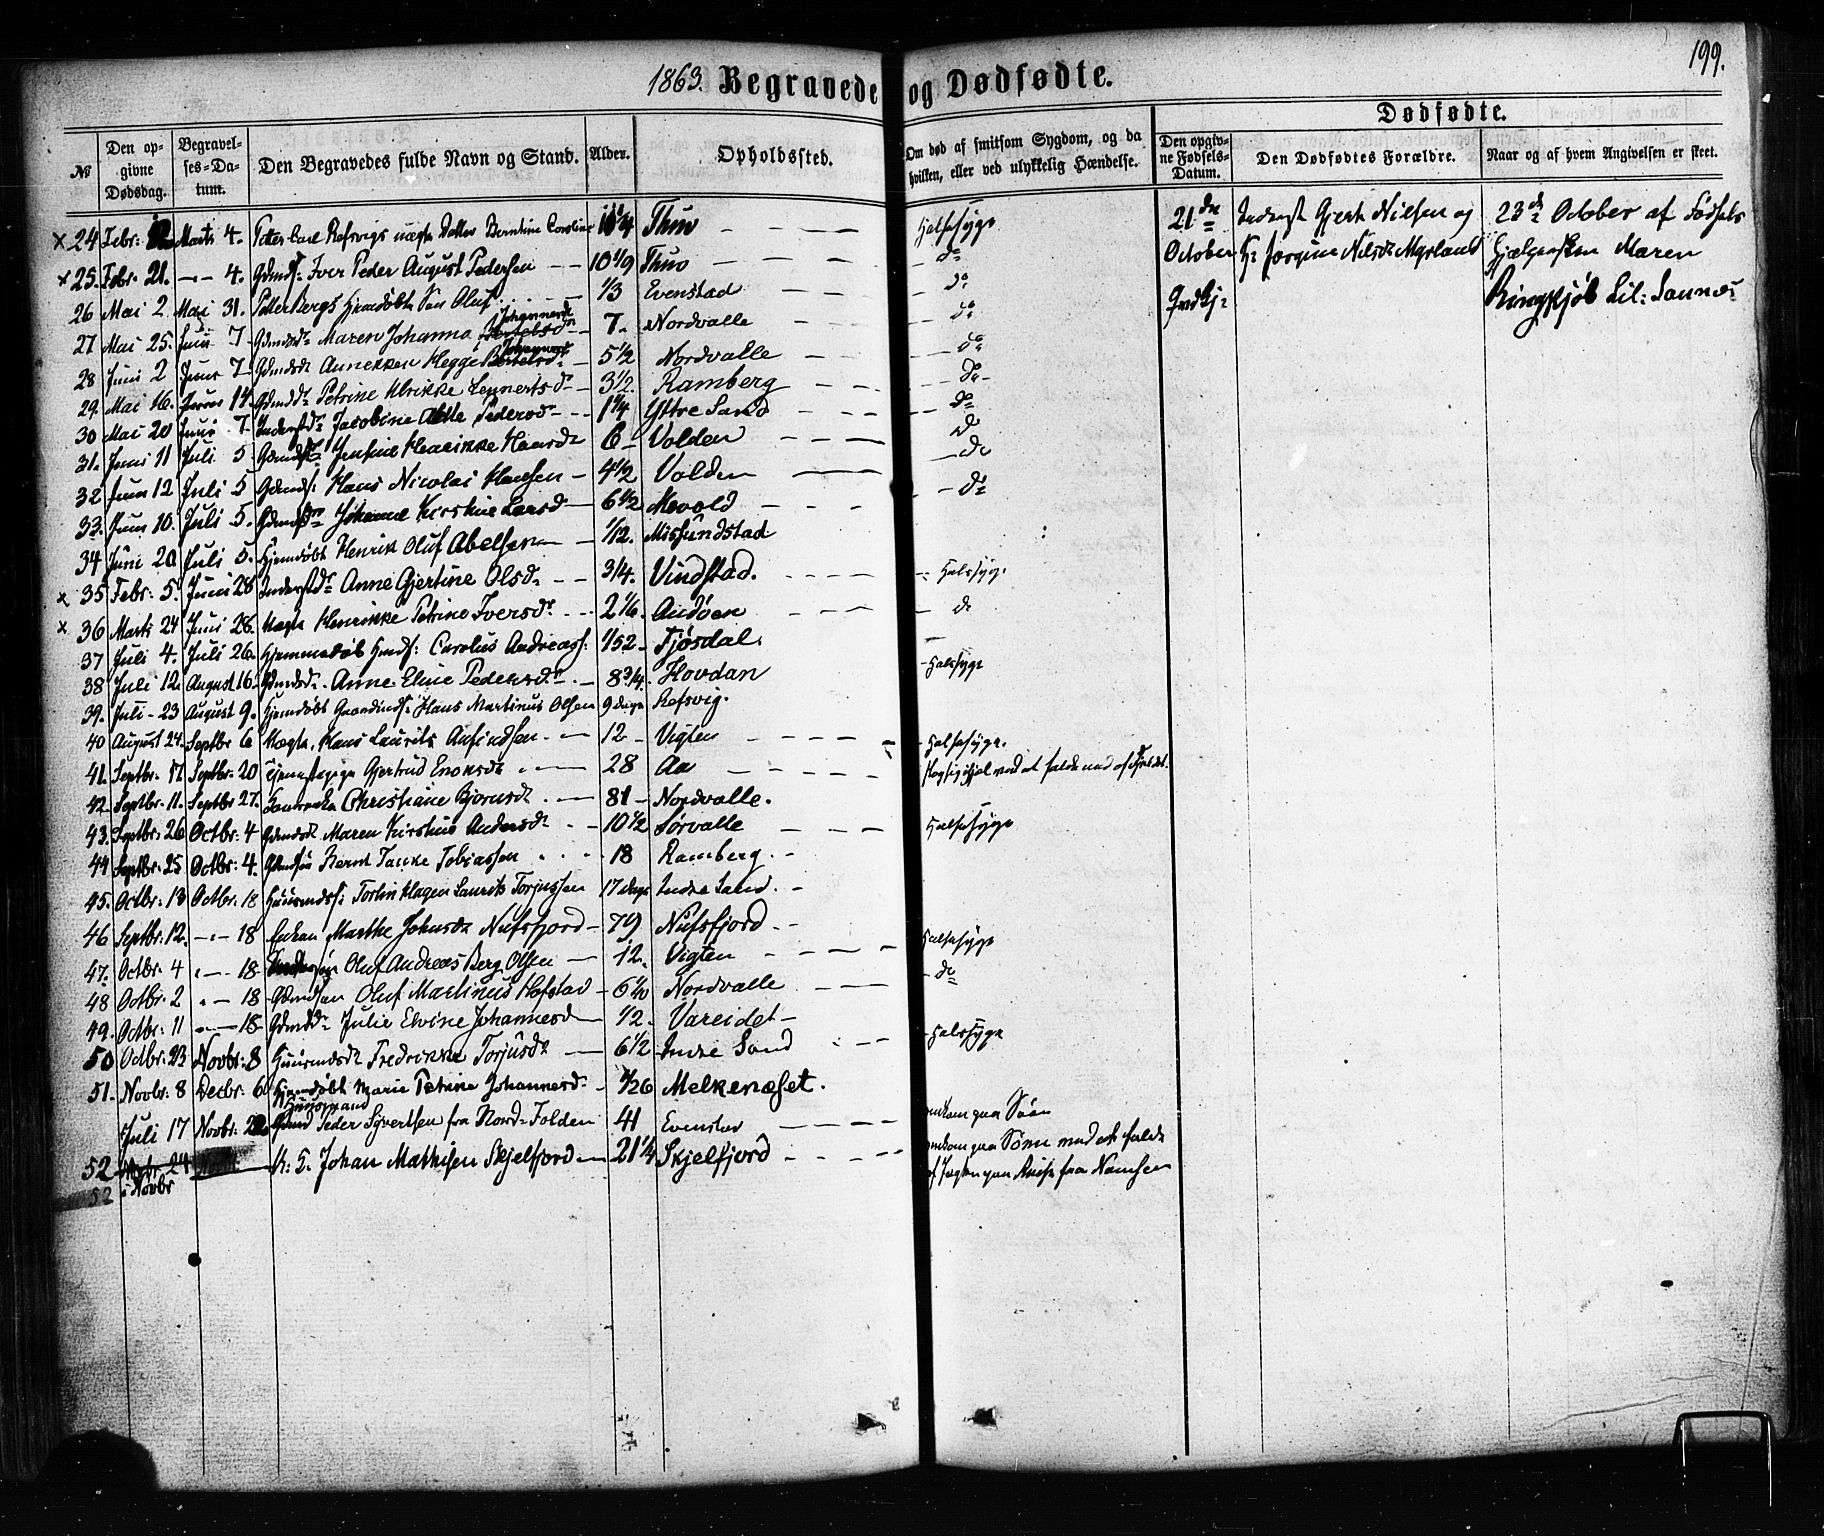 1863. Begravede og Dødfødte.
199.
Dødfødte.
№ Den opgivne Dødsdag. Begravelses-Datum. Den Begravedes fulde Navn og Stand. Alder. Opholdssted. Om død af smitsom Sygdom, og da hvilken, eller ved ulykkelig Hændelse. Den opgivne Fødsels-Datum. Den Dødfødtes Forældre. Naar og af hvem Angivelsen er skeet.
x 24 Febr: Marts 4. Petter Carl Refsvigs uægte Datter Berntine Caroline Thuv Halssyge
21de October Inderst Gjert Nilsen og H: Jorgine Nilsdr Myrland 23de October af Fødselshjelpersken Maren Ringskjøb Lil: Sannæs
x 25. Febr: 21. -- 4. Gdmds: Iver Peder August Pedersen -- 10 1/9 Thuv do
26 Mai 2. Mai 31. Petter Bergs Hjemdøbte Søn Oluf 1/3 Evenstad do
27 Mai 25. Juni 7 Gdmdsdr Maren Johanna Johannesdr 7. Nordvalle do
28 Juni 2 Juni 7 Gdmdsdr Annekken Hegge Johannesdr 5 1/2 Nordvalle do
29. Mai 16. Juni 14. Gdmddr Petrine Ulrikke Lennertsdr 3 1/2. Ramberg do
30 Mai 20 Juni 7 Inderstdr Jacobine Pedersdr 1 1/4 Yttre Sand do
31. Juni 11 Juli 5 Gdmdsdr Jensine Henrikke Hansdr 6 Volden do
32 Juni 12 Juli 5 Gdmds: Hans Nicolai Hansen 4 1/2 Volden do
33. Juni 10. Juli 5. Gdmdsdr Johanne Kirstine Larsd 6 1/2 Mevold do
34 Juni 20 Juli 5. Hjemdøbt Henrik Oluf Abelsen 1/12. Missundstad
x 35 Febr: 5. Juni 28 Inderstdr Anne Gjertine Olsdr 3/4. Vindstad. Halssyge
x 36 Marts 24 Juni 28. Uægte Henrikke Petrine Iversdr 2 1/6. Andøen do
37 Juli 4. Juli 26. Hjemmedøb Carolus Andreass: 1/52 Fjøsdal.
38 Juli 12. August 16. Gdmdsdr Anne Eline Pedersdr 8 3/4. Hovdan Halssyge
39. Juli 23 August 9. Hjemdøbt Hans Martinus Olsen 9 dage Refsvig.
40 August 24. Septbr 6 Uægte, Hans Laurits Anfindsen 12 Vigten Halssyge.
41. Septbr. 17 Septbr. 20 Tjenestepige Gjertrud Enoksdr 28 Aa Slog sig ihjel ved at falde ned af Fjeldet.
42. Septbr. 11. Septbr 27. Christiane Bjornsdr 81 Nordvalle.
43. Septbr: 26 Octbr: 4 Gdmdsdr Maren Kirstine Andersdr 10 1/2 Sørvalle Halssyge
44 Septbr: 25 Octbr: 4. Gdmdsøn Bernt Tanke Tobiassen 18 Ramberg.
45. Octbr: 13 Octbr: 18 Huusmdss: Torlin Hagen Laurits Torjussen 17 dage Indre Sand.
46 Septbr: 12. -- 18 Enken Marthe Johnsdr Nufsfjord 79 Nufsfjord
47. Octbr. 4 -- 18 Oluf Andreas Berg Olsen 12. Vigten Halssyge
48 Octbr. 2 -- 18 Gdmdsøn Oluf Martinus Hofstad Nordvalle do
49. Octbr: 11 -- 18 Gdmddr Julie Elvine Johannesd 1/2. Vareidet
50 Octbr: 23 Novbr: 8 Huusmdsdr Fredrikke Torjusdr 6 1/2 Indre Sand Halssyge
51. Novbr: 8 Decbr: 6 Hjemdøbt Marie Petrine Johannesdr 1/26 Melkenæset.
Juli 17 Novbr: Huusmand Peder Syvertsen fra Nord-Folden 41 Evenstad omkom paa Søen
52 Novbr. 24 K: S. Johan Mathisen Skjelfjord 21 1/4 Skjelfjord omkom paa Søen ved at falde
52 i Novbr af Jægten paa Reise fra Namsen